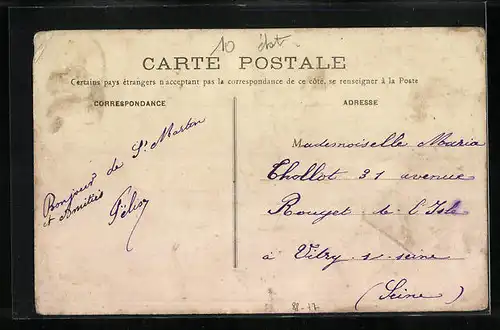 10
CARTE POSTALE
Certains pays étrangers n'acceptant pas la correspondance de ce côté, se renseigner à la Poste
CORRESPONDANCE
ADRESSE
Bonjour de St Martin
et Amitiés
Mademoiselle Maria
Thollot 31 avenue
Rouget de l'Isle
à Vitry-s-seine
(Seine)